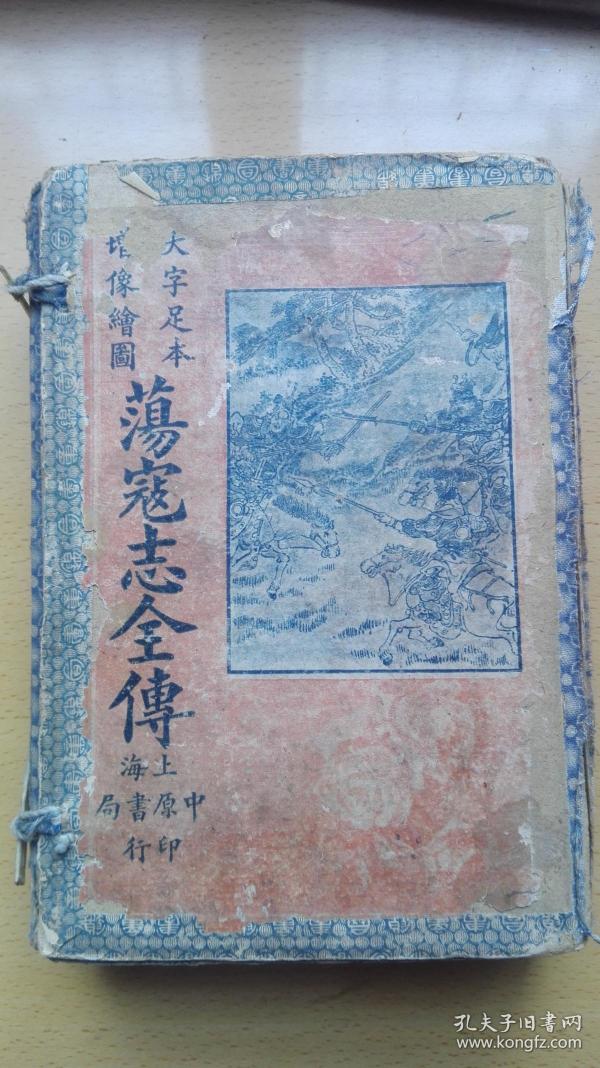 大字足本
增像繪圖
蕩寇志全傳
上海
中原書局
印行
孔夫子旧书网
www.kongfz.com